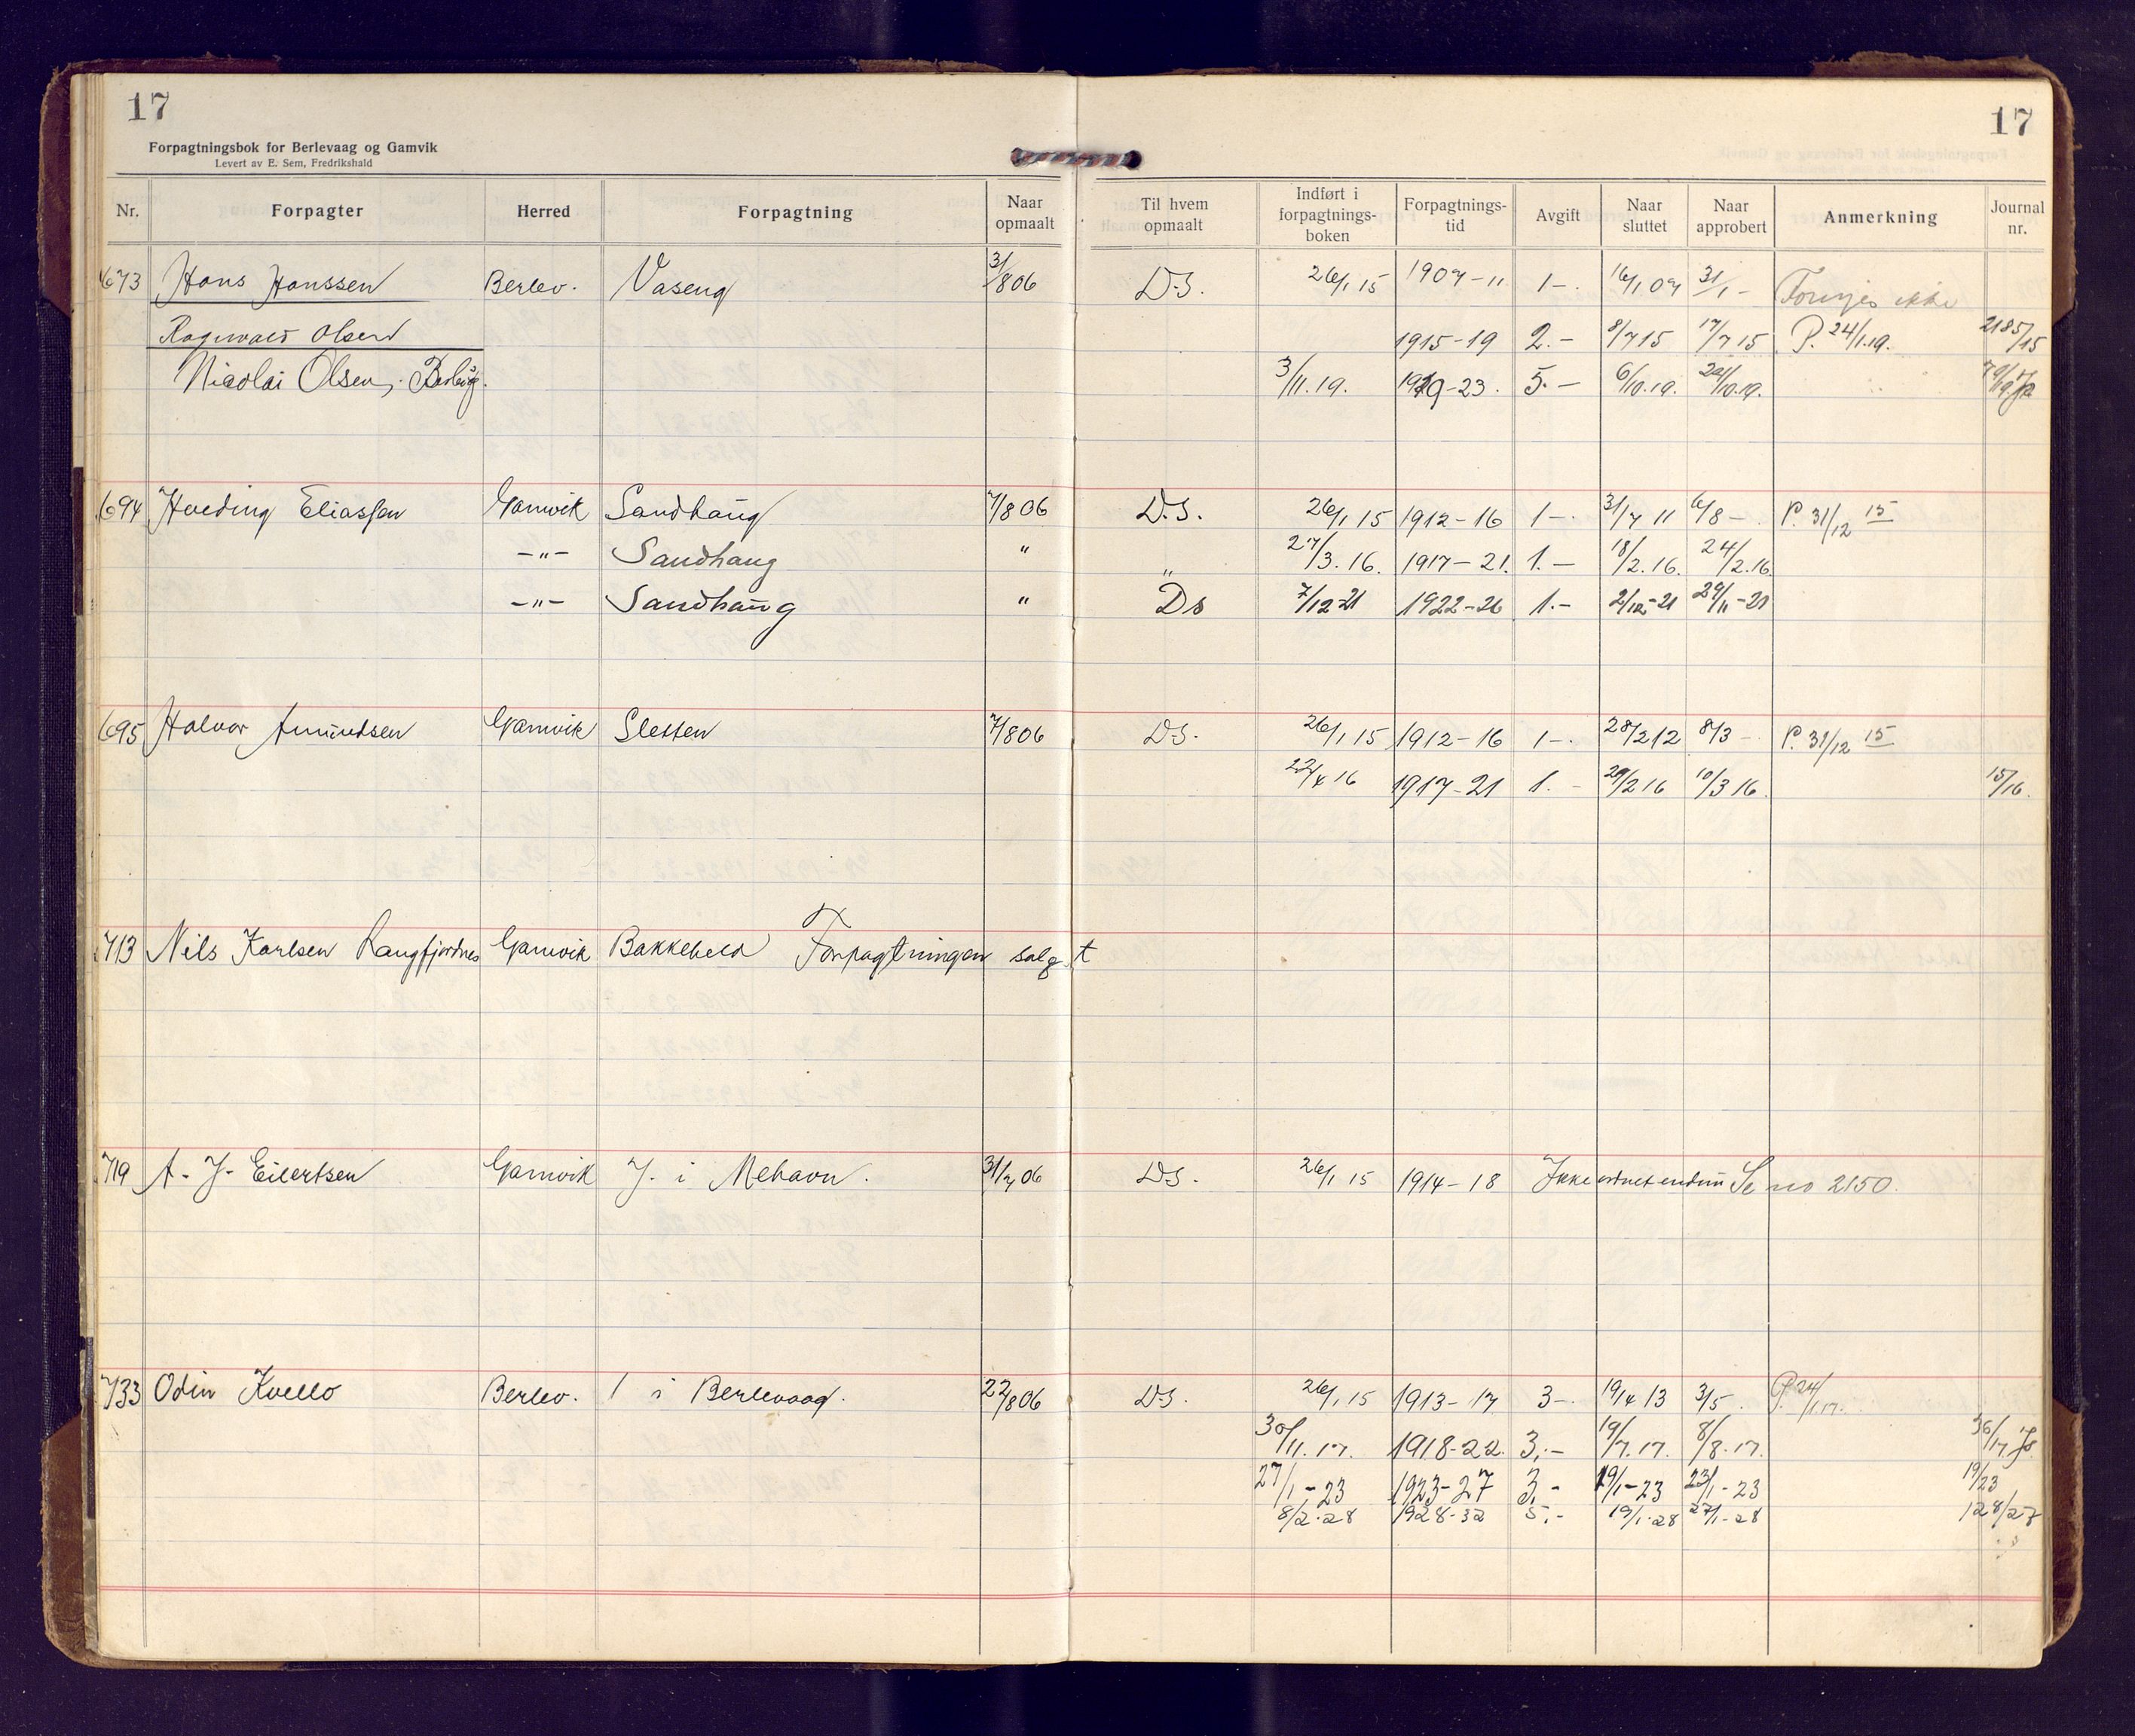 17
17
Forpagtningsbok for Berlevaag og Gamvik
Levert av E. Sem, Fredrikshald
Nr. Forpagter Herred Forpagtning Naar opmaalt Til hvem opmaalt Indført i forpagtnings-boken Forpagtnings-tid Avgift Naar sluttet Naar approbert Anmerkning Journal nr.
673 Hans Hanssen Berlev. Vaseng 3/806 D.S. 26/1 15 1907-11 1-. 16/1 07 31/1 - Fornyes ikke
Ragnvald Olsen 1915-19 2.- 8/7 15 17/7 15 P. 24/1.19. 2185/15
Nicolai Olsen, 3/11.19. 1919-23. 5.- 6/10.19. /10.19.
694 Hveding Eliassen Gamvik Sandhaug 7/806 D.S. 26/1 15 1912-16 1-. 31/7 11 6/8 - P. 31/12 15
-"- Sandhaug " " 27/3.16. 1917-21. 1.- 18/2.16. 24/2.16.
-"- Sandhaug " Ds 7/12-21 1922-26 1.- 2/12-21 29/11-21
695 Halvor Amundsen Gamvik Sletten 7/806 D.S. 26/1 15 1912-16 1-. 28/2 12 8/3 - P. 31/12 15
22/4 16 1917-21 1.- 29/2 16 10/3 16. 15/16.
713 Nils Karlsen Langfjordnes Gamvik Bakkeheld Forpagtningen solgt
719 A. J. Eilertsen Gamvik J. i Mehavn. 31/7 06 D.S. 26/1 15 1914-18 Ikke ordnet endnu Se no 2150.
733 Odin Kvello Berlev. 1 i Berlevaag. 22/806 D.S. 26/1 15 1913-17 3-. 19/4 13 3/5. P. 24/1.17.
30/11.17. 1918-22. 3.- 19/7.17. 8/8.17. 36/17
27/1-23 1923-27 3.- 19/1-23 23/1-23 19/23
8/2-28 1928-32 5.- 19/1-28 27/1-28 128/27